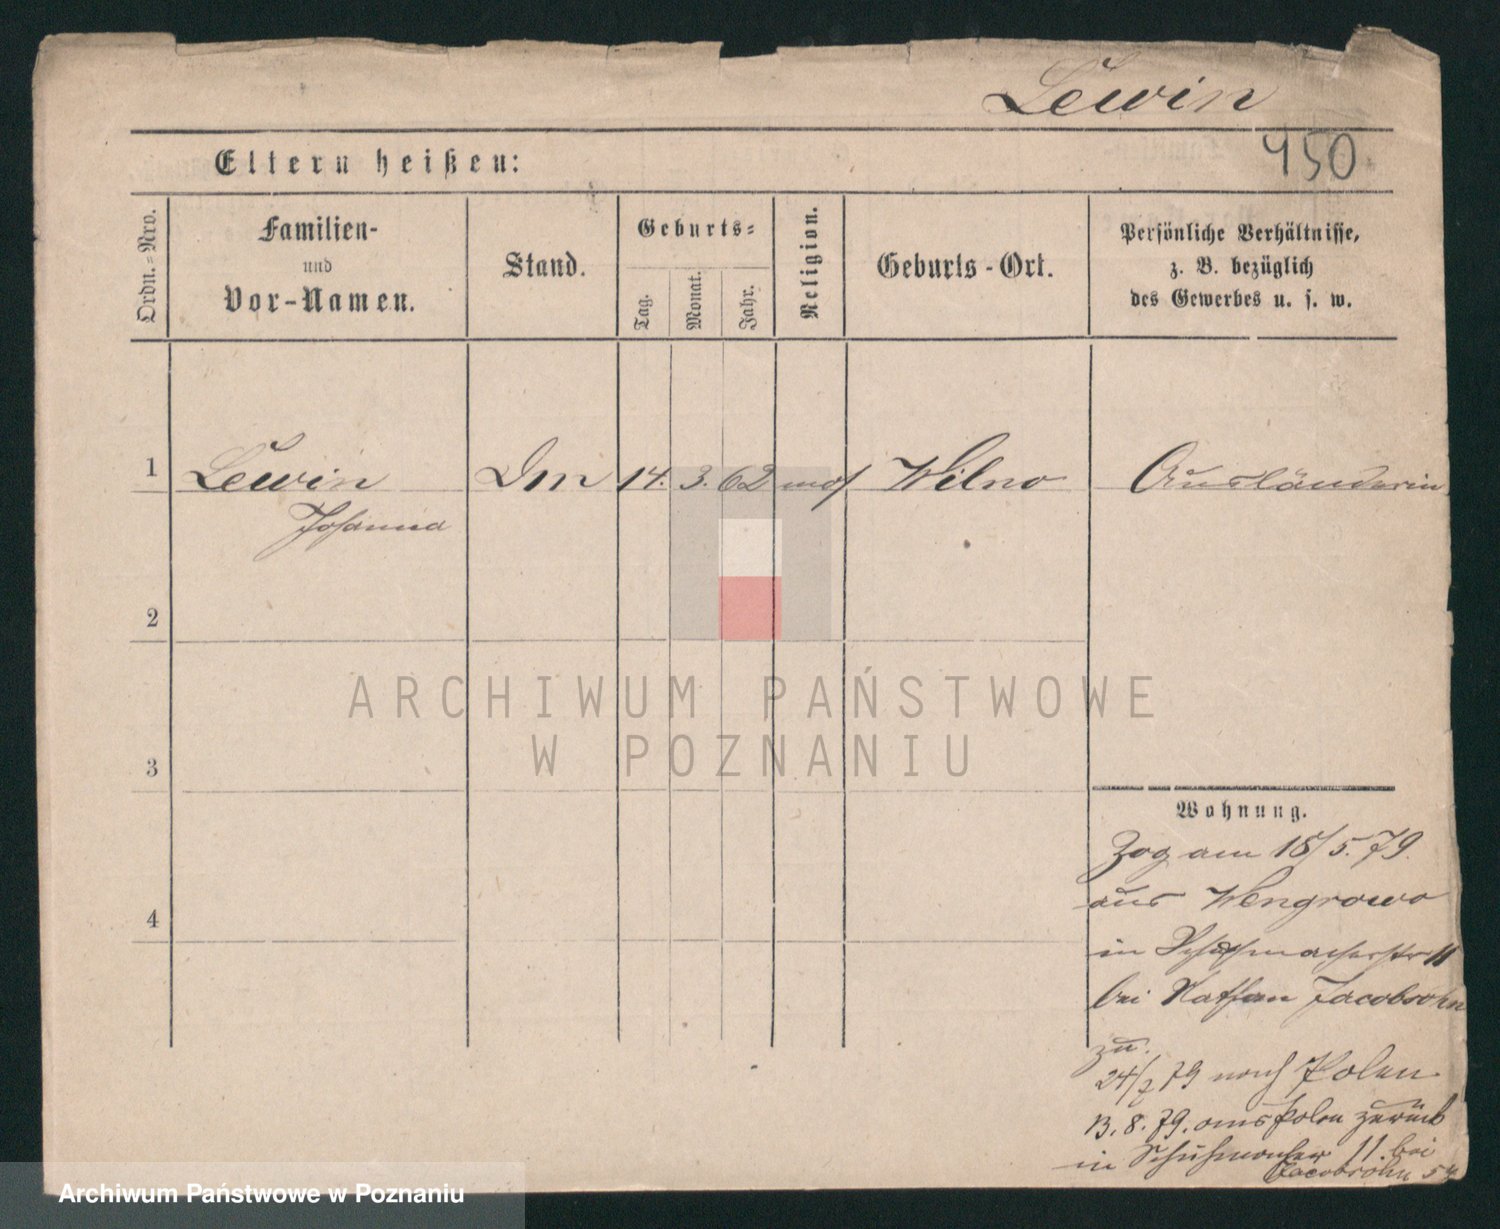 Lewin
450
Eltern heißen:
Ordn.-Nro.
Familien-
und
Vor-Namen.
Stand.
Geburts-
Tag.
Monat.
Jahr.
Religion.
Geburts-Ort.
Persönliche Verhältnisse,
z. B. bezüglich
des Gewerbes u. s. w.
1 Lewin 14. 3. 62 mos Wilno Ausländerin
Johanna
2
3
4
Wohnung.
Zog am 18/5. 79.
aus Wengrowo
in Schuhmacherstr 11
bei Nathan Jacobsohn
zu.
24/7 79 nach Polen
13. 8. 79. aus Polen zurück
in Schuhmacher 11. bei
Jacobsohn
ARCHIWUM PAŃSTWOWE
W POZNANIU
Archiwum Państwowe w Poznaniu